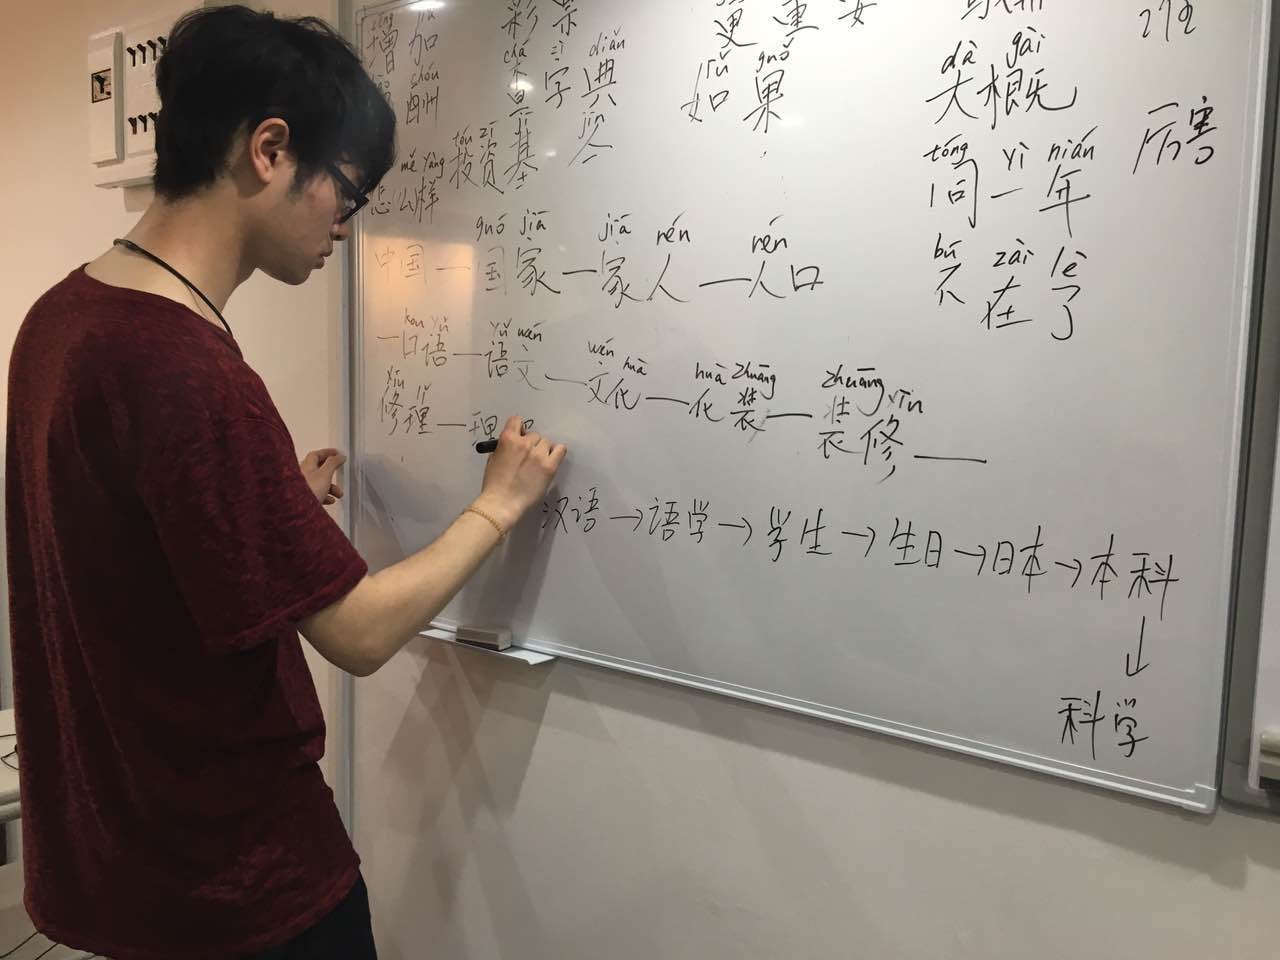 zēng jiā
增加
shóu
酬
mě yàng
怎么样
zì diǎn
查字典
jīn
今
tóu zī jī
投资基
rú guǒ
如果
dà gài
大概
tóng yì nián
同一年
bú zài lè
不在了
厉害
guó jiā jiā rén rén
中国—国家—家人—人口
kou yǔ yǔ wén wén huà huà zhuāng zhuāng xīu
—口语—语文—文化—化装—装修—
xīu lǐ
修理—理
汉语→语学→学生→生日→日本→本科
↓
科学